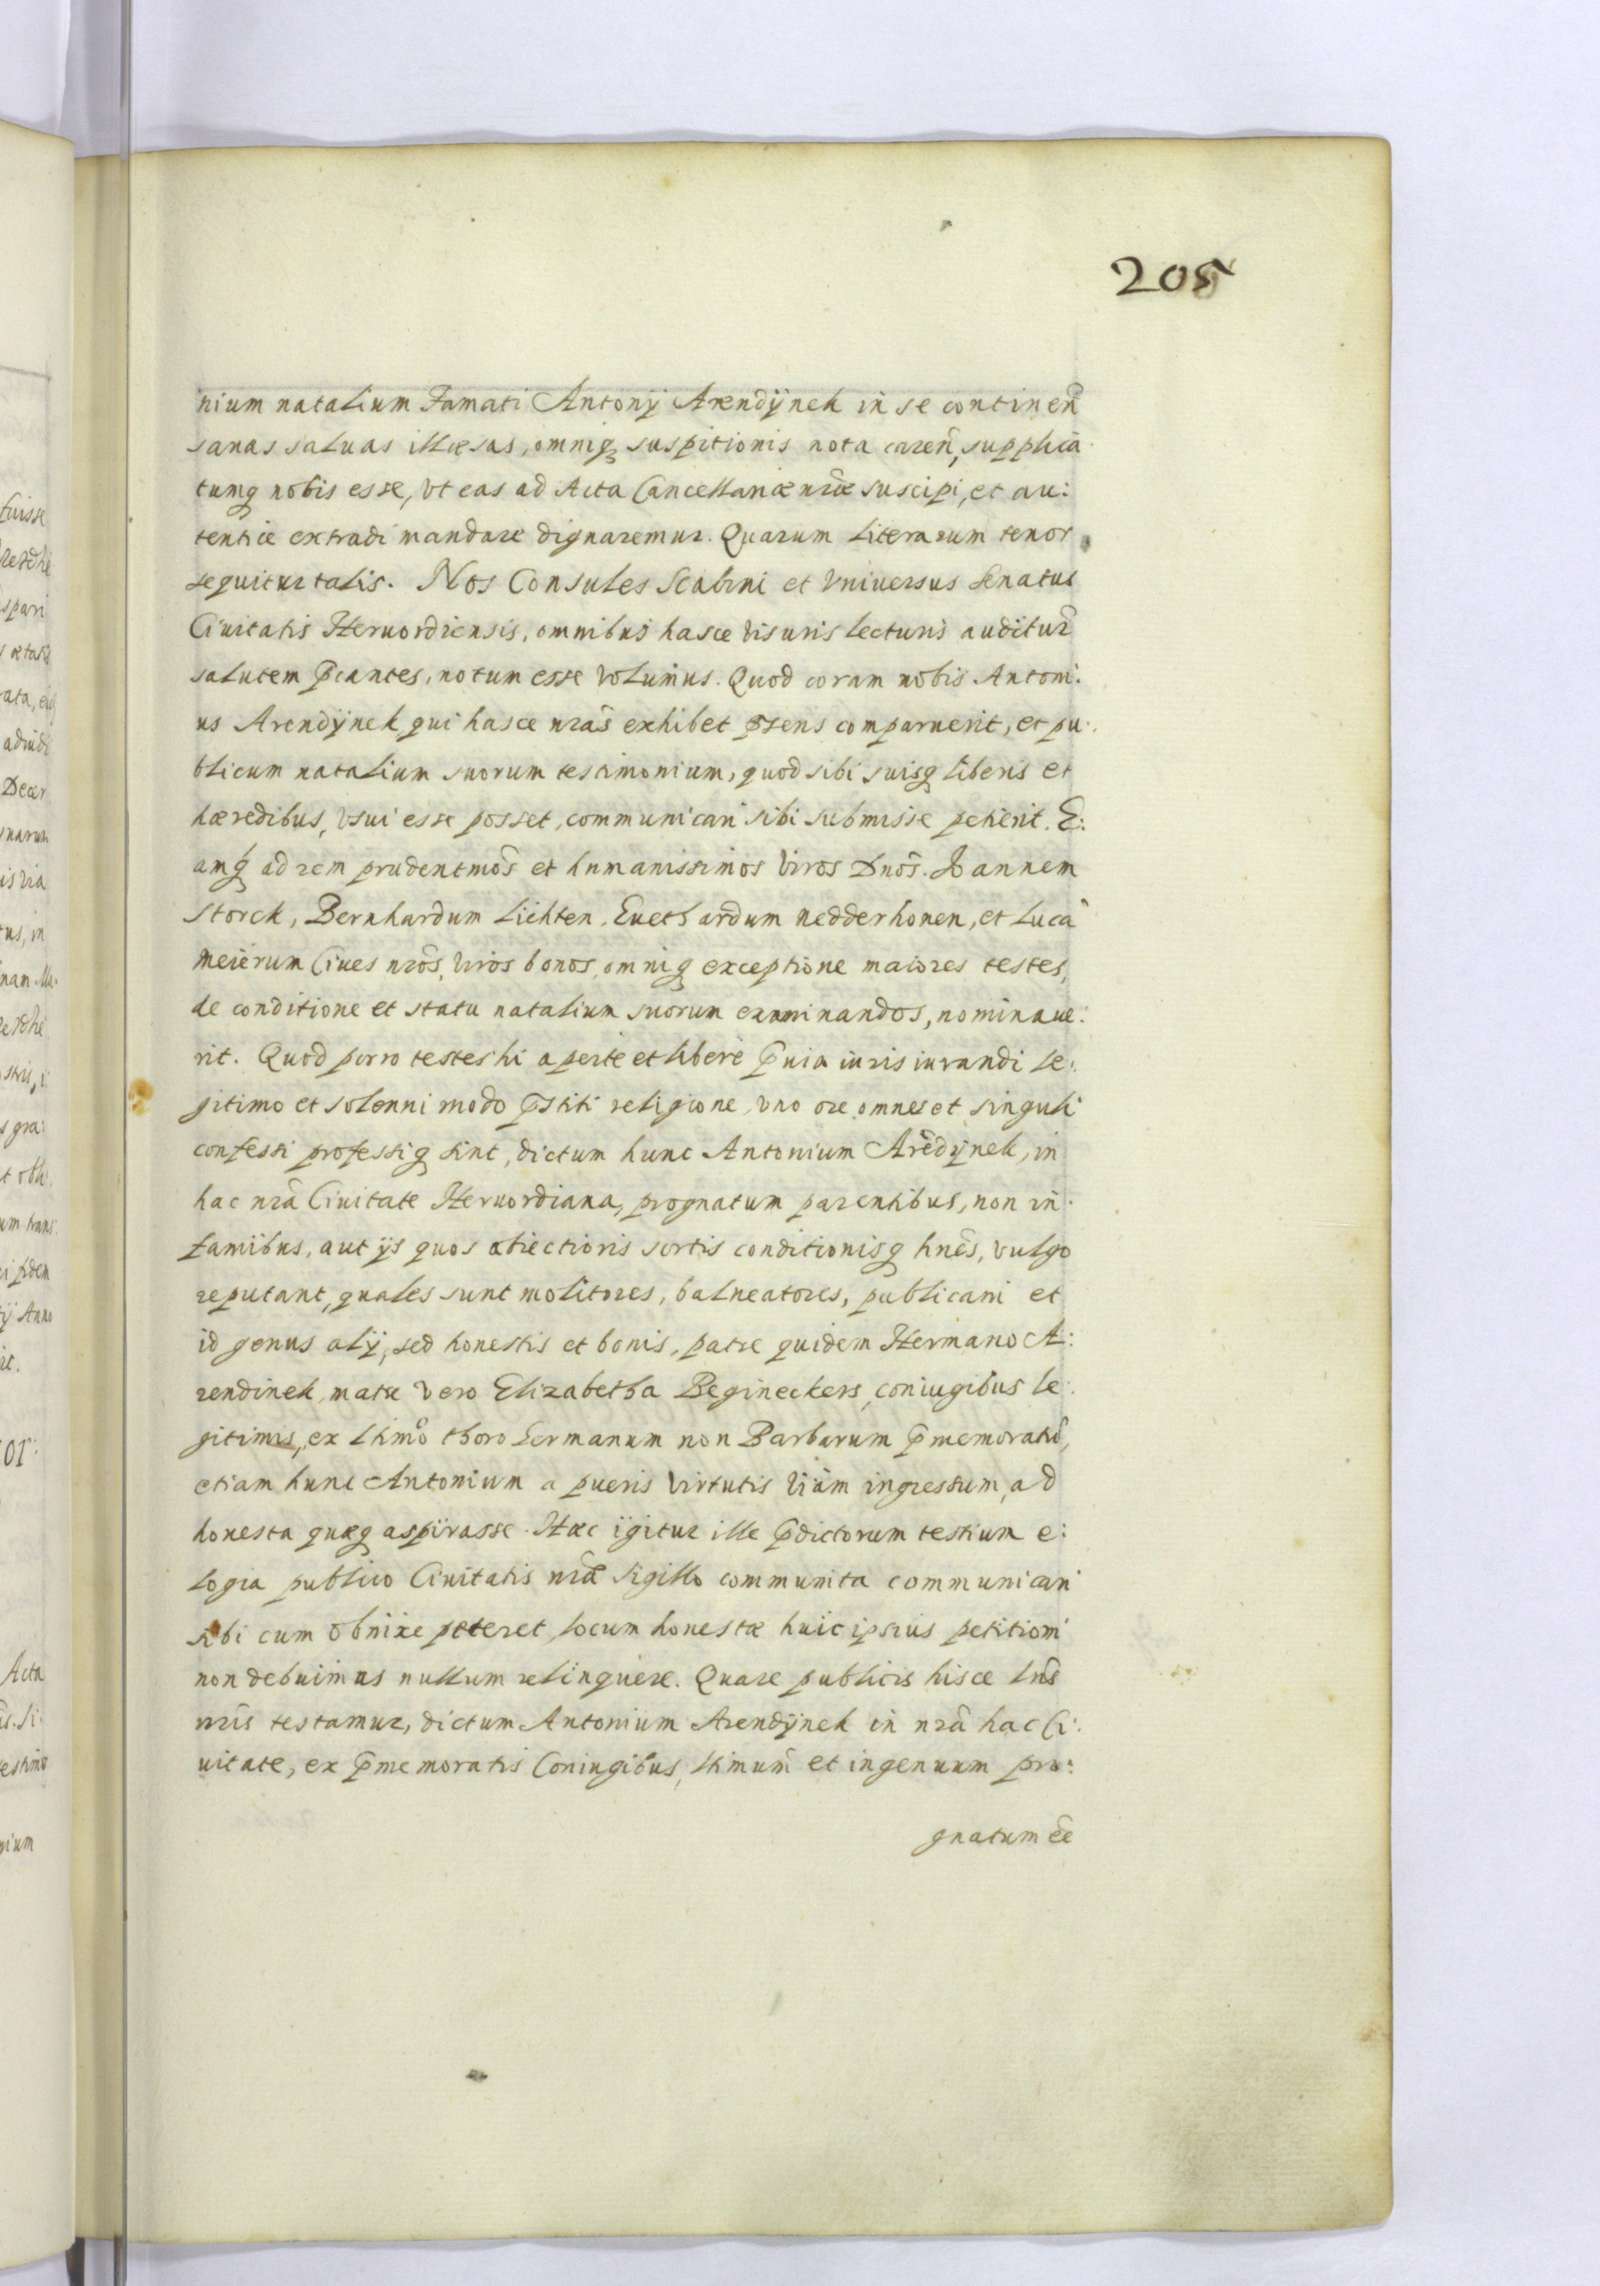 205
nium natalium Famati Antonÿ Arendÿnek in se continen̄
sanas saluas illæsas, omniq́ꝫ suspitionis nota caren̄, supplica
tumqꝫ nobis esse, vt eas ad Acta Cancellariæ nr̄æ suscipi, et au:
tentice extradi mandare dignaremur. Quarum literarum tenor
sequitur talis. Nos Consules Scabini et Vniuersus Senatus
Ciuitatis Heruordiensis, omnibus hasce visuris lecturis auditur̄
salutem p̄cantes, notum esse volumus. Quod coram nobis Antoni:
us Arendÿnek qui hasce nr̄as exhibet p̄sens comparuerit, et pu:
blicum natalium suorum testimonium, quod sibi suisqꝫ liberis et
hæredibus, vsui esse posset, communicari sibi submisse petierit. E:
amqꝫ ad rem prudentmōs et humanissimos viros Dnōs. Joannem
Storck, Bernhardum Lichten, Euethardum nedderhonen, et Lucā
meierum Ciues nrōs, viros bonos, omniqꝫ exceptione maiores testes,
de conditione et statu natalium suorum examinandos, nominaue:
rit. Quod porro testes hi aperte et liberè p̄uia iuris iurandi le:
gitimo et solenni modo p̄stiti religione, vno ore omnes et singuli
confessi professiqꝫ sint, dictum hunc Antonium Arēdÿnek, in
hac nrā Ciuitate Heruordiana, prognatum parentibus, non in:
famibus, aut ijs quos abiectioris sortis conditionisqꝫ hnēs, vulgo
reputant, quales sunt molitores, balneatores, publicani et
id genus alij, sed honestis et bonis, patre quidem Hermano A:
rendinek, matre vero Elizabetha Begineckers, coniugibus le:
gitimis, ex ltimo thoro Germanum non Barbarum p̄memoratū,
etiam hunc Antonium a pueris virtutis viam ingressum, ad
honesta quæqꝫ aspirasse. Hæc igitur ille p̄dictorum testium e:
logia publico Ciuitatis nrǣ sigillo communita communicari
sibi cum obnixe peteret, locum honestæ huic ipsius petitioni
non debuimus nullum relinquere. Quare publicis hisce lrīs
nrīs testamur, dictum Antonium Arendÿnek in nrā hac Ci:
uitate, ex p̄memoratis Coniugibus, ltimum̄ et ingenuum pro:
gnatum eē